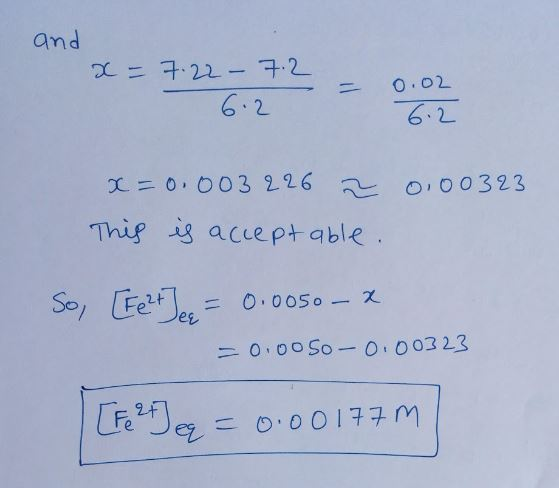 and
x = 7.22 - 7.2 / 6.2 = 0.02 / 6.2
x = 0.003226 ≈ 0.00323
This is acceptable.
So, [Fe²⁺]eq = 0.0050 - x
= 0.0050 - 0.00323
[Fe²⁺]eq = 0.00177 M